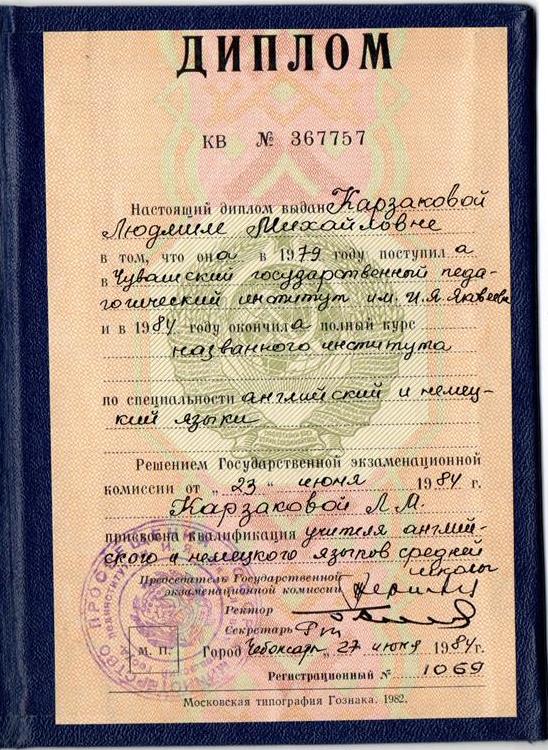 ДИПЛОМ
КВ № 367757
Настоящий диплом выдан Карзаковой
Людмиле Михайловне
в том, что она в 1979 году поступила
в Чувашский государственный педа-
гогический институт им. И.Я. Яковлева
и в 1984 году окончила полный курс
названного института
по специальности английский и немец-
кий языки
Решением Государственной экзаменационной
комиссии от „23" июня 1984 г.
Карзаковой Л.М.
присвоена квалификация учителя англий-
ского и немецкого языков средней
школы
Председатель Государственной
экзаменационной комиссии
Ректор
Секретарь
М. П.
Город Чебоксары „27 июня 1984 г.
Регистрационный № 1069
Московская типография Гознака. 1982.